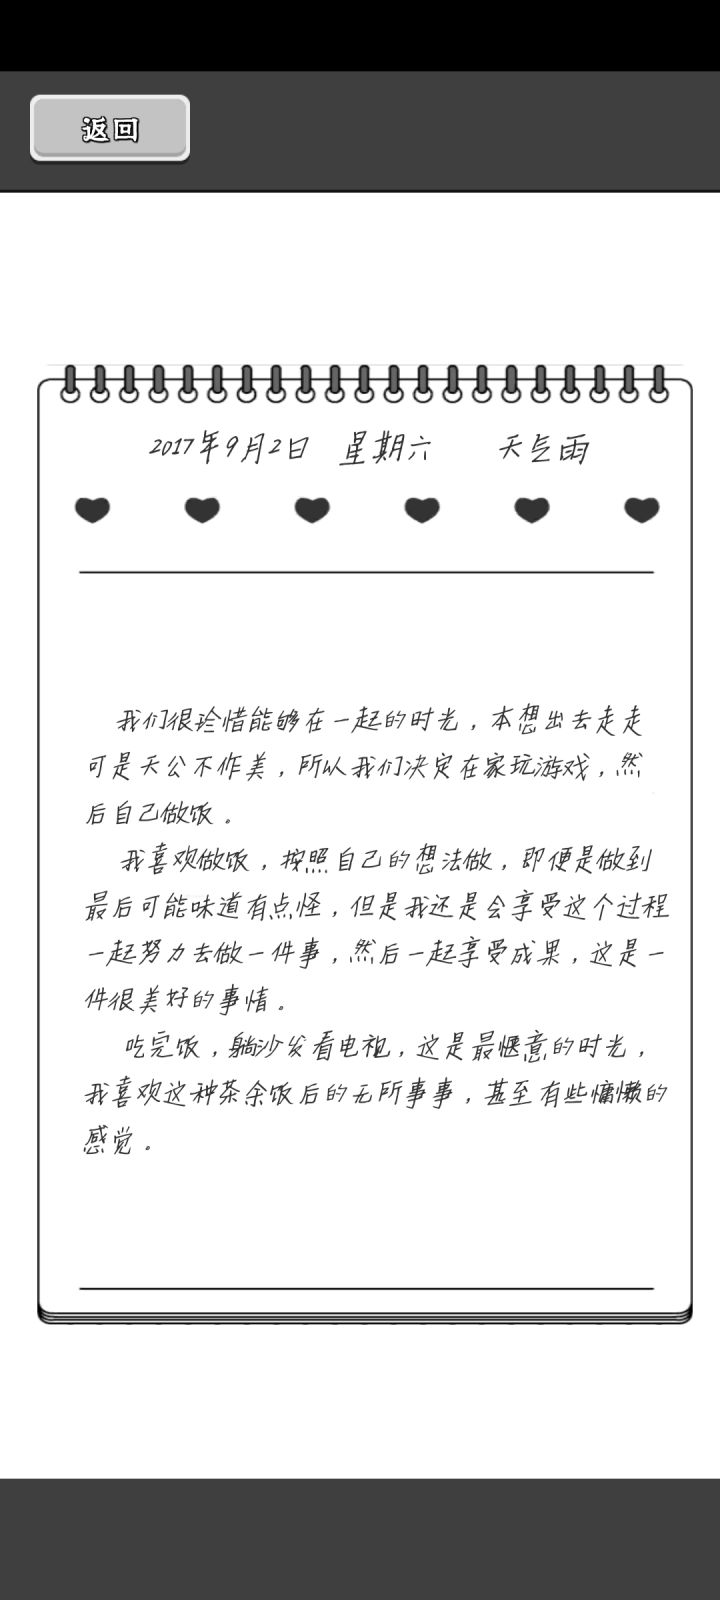 返回
2017年9月2日 星期六 天气雨
我们很珍惜能够在一起的时光，本想出去走走
可是天公不作美，所以我们决定在家玩游戏，然
后自己做饭。
我喜欢做饭，按照自己的想法做，即便是做到
最后可能味道有点怪，但是我还是会享受这个过程
一起努力去做一件事，然后一起享受成果，这是一
件很美好的事情。
吃完饭，躺沙发看电视，这是最惬意的时光，
我喜欢这种茶余饭后的无所事事，甚至有些慵懒的
感觉。